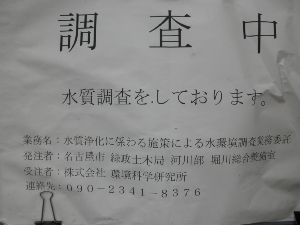 調査中
水質調査をしております。
業務名：水質浄化に係わる施策による水環境調査業務委託
発注者：名古屋市 緑政土木局 河川部 堀川総合整備室
受注者：株式会社 環境科学研究所
連絡先：090-2341-8376